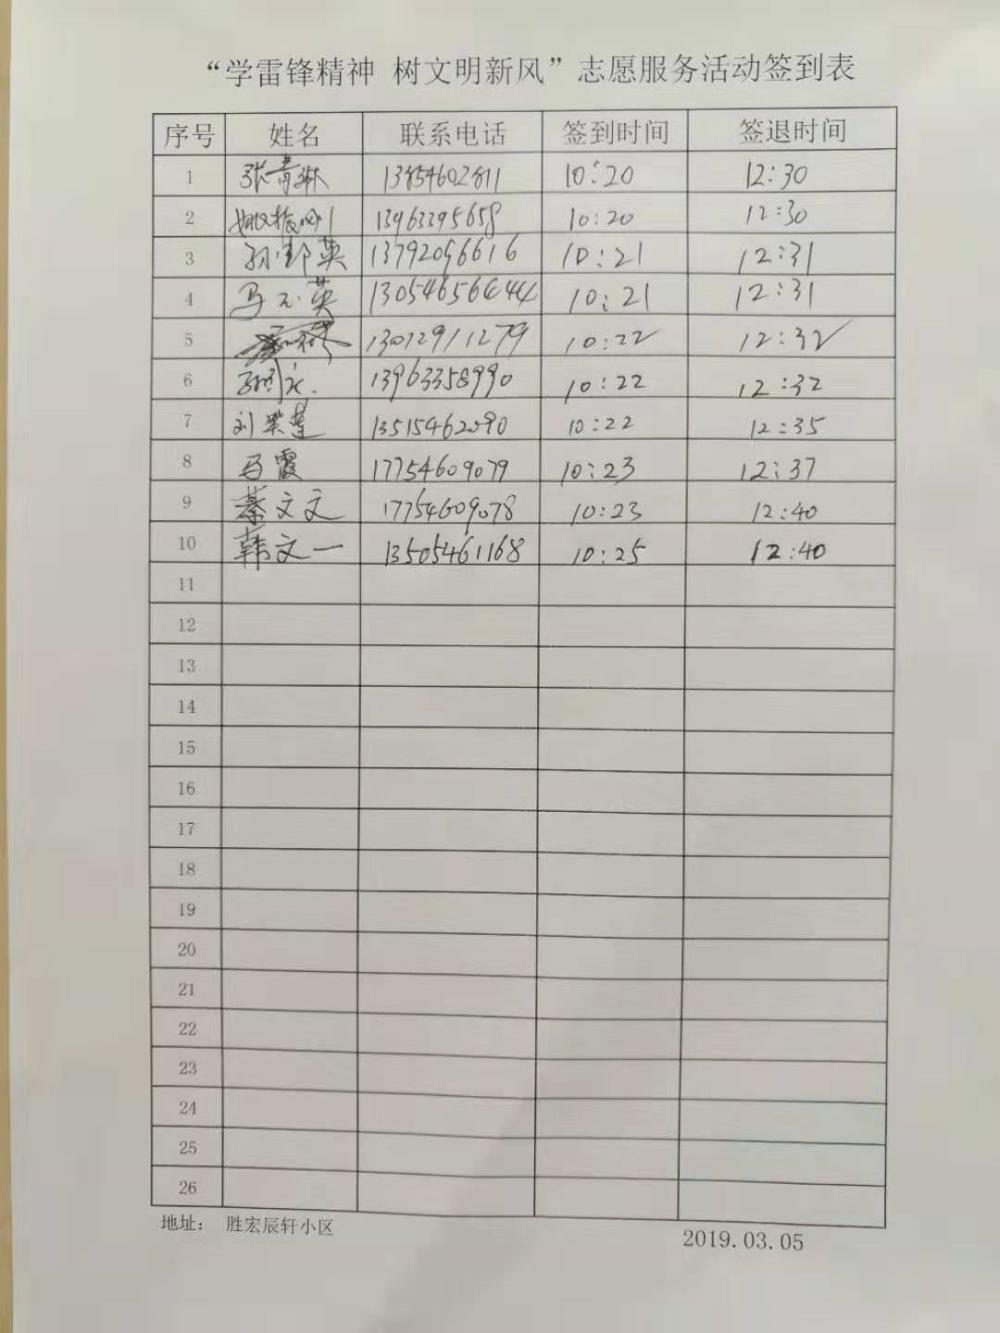 “学雷锋精神 树文明新风”志愿服务活动签到表
序号 姓名 联系电话 签到时间 签退时间
1 张青琳 13854602811 10:20 12:30
2 13963395658 10:20 12:30
3 孙 英 13792096616 10:21 12:31
4 马玉英 13054656444 10:21 12:31
5 13012911279 10:22 12:32
6 13963358990 10:22 12:32
7 刘荣莲 13515462090 10:22 12:35
8 马霞 17754609079 10:23 12:37
9 綦文文 17754609078 10:23 12:40
10 韩文一 13505461168 10:25 12:40
11
12
13
14
15
16
17
18
19
20
21
22
23
24
25
26
地址： 胜宏辰轩小区
2019.03.05